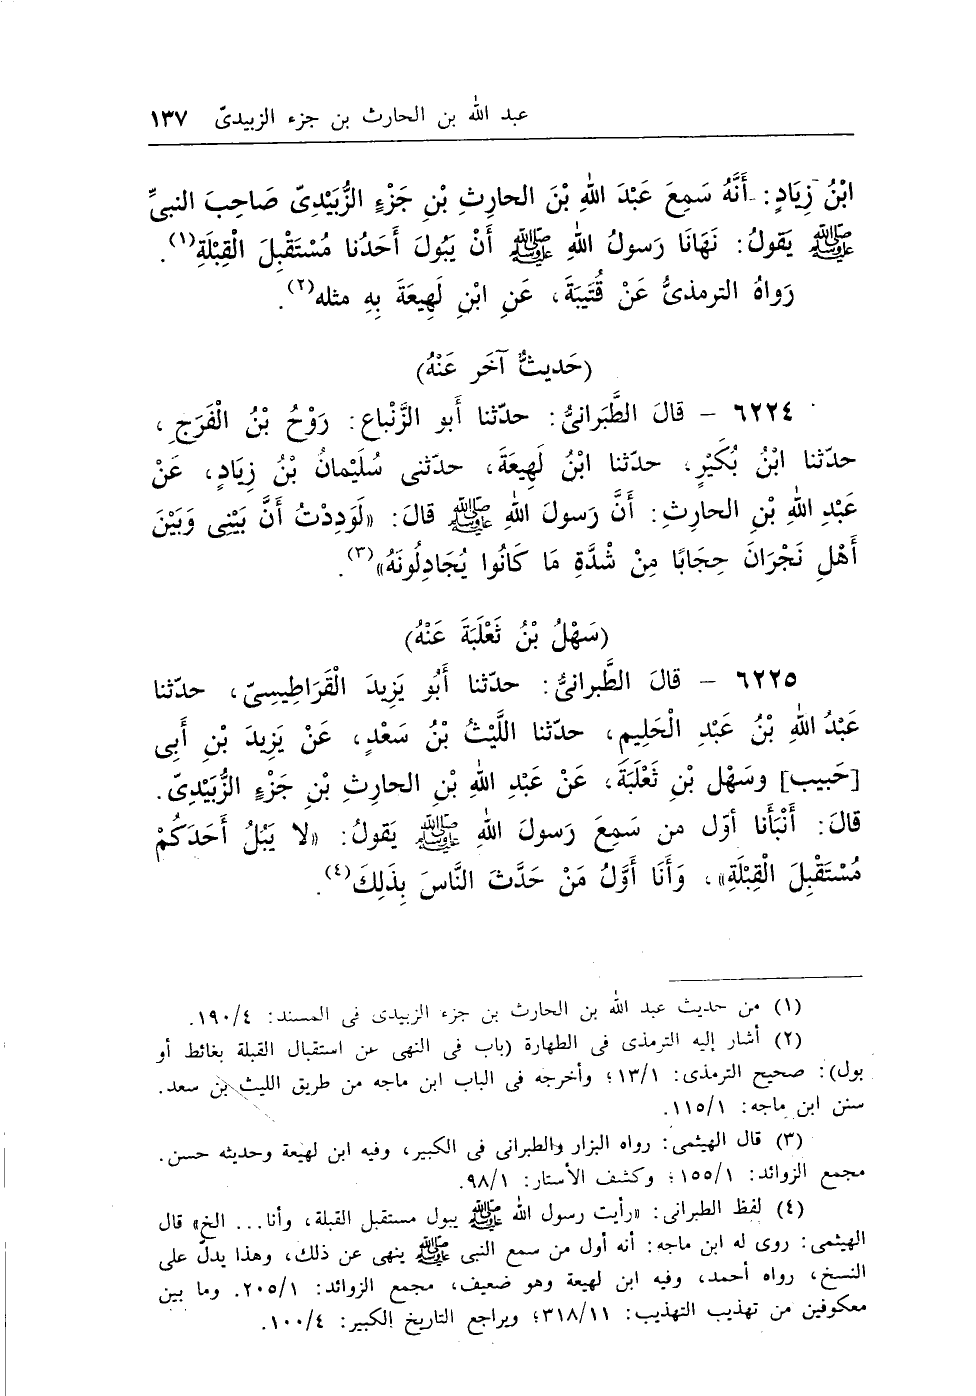 عبد الله بن الحارث بن جزء الزبيدىّ ١٣٧
ابْنُ زِيَادٍ: أَنَّهُ سَمِعَ عَبْدَ اللهِ بْنَ الحارِثِ بْنِ جَزْءٍ الزُّبَيْدِىّ صَاحِبَ النبىِّ
ﷺ يَقولُ: نَهَانَا رَسولُ اللهِ ﷺ أَنْ يَبُولَ أَحَدُنا مُسْتَقْبِلَ الْقِبْلَةِ(١).
رَواهُ الترمذىُّ عَنْ قُتَيبَةَ، عَنِ ابْنِ لَهِيعَةَ بِهِ مثله(٢).
(حَديثٌ آخَر عَنْهُ)
٦٢٢٤ – قالَ الطَّبَرانىُّ: حدّثنا أَبو الزَّنْباع: رَوْحُ بْنُ الْفَرَجِ،
حدّثنا ابْنُ بُكَيْرٍ، حدّثنا ابْنُ لَهِيعَةَ، حدّثنى سُلَيْمانُ بْنُ زِيَادٍ، عَنْ
عَبْدِ اللهِ بْنِ الحارِثِ: أَنَّ رَسولَ اللهِ ﷺ قالَ: «لَوَدِدْتُ أَنَّ بَيْنِى وَبَيْنَ
أَهْلِ نَجْرَانَ حِجَابًا مِنْ شْدَّةِ مَا كَانُوا يُجَادِلُونَهُ»(٣).
(سَهْلُ بْنُ ثَعْلَبَةَ عَنْهُ)
٦٢٢٥ – قالَ الطَّبرانىُّ: حدّثنا أَبُو يَزِيدَ الْقَرَاطِيسِىّ، حدّثنا
عَبْدُ اللهِ بْنُ عَبْدِ الْحَلِيمِ، حدّثنا اللَّيْثُ بْنُ سَعْدٍ، عَنْ يَزِيدَ بْنِ أَبِى
[حَبيب] وسَهْل بْنِ ثَعْلَبَةَ، عَنْ عَبْدِ اللهِ بْنِ الحارِثِ بْنِ جَزْءٍ الزُّبَيْدِىّ.
قالَ: أَنْبَأَنا أوّل من سَمِعَ رَسولَ اللهِ ﷺ يَقولُ: «لا يَبُلْ أَحَدَكُمْ
مُسْتَقْبِلَ الْقِبْلَةِ»، وَأَنَا أَوَّلُ مَنْ حَدَّثَ النَّاسَ بِذَلِكَ(٤).
(١) من حديث عبد الله بن الحارث بن جزء الزبيدى فى المسند: ١٩٠/٤.
(٢) أشار إليه الترمذى فى الطهارة (باب فى النهى عن استقبال القبلة بغائط أو
بول): صحيح الترمذى: ١٣/١؛ وأخرجه فى الباب ابن ماجه من طريق الليث بن سعد.
سنن ابن ماجه: ١١٥/١.
(٣) قال الهيثمى: رواه البزار والطبرانى فى الكبير، وفيه ابن لهيعة وحديثه حسن.
مجمع الزوائد: ١٥٥/١؛ وكشف الأستار: ٩٨/١.
(٤) لفظ الطبرانى: «رأيت رسول الله ﷺ يبول مستقبل القبلة، وأنا... الخ» قال
الهيثمى: روى له ابن ماجه: أنه أول من سمع النبى ﷺ ينهى عن ذلك، وهذا يدلّ على
النسخ، رواه أحمد، وفيه ابن لهيعة وهو ضعيف، مجمع الزوائد: ٢٠٥/١. وما بين
معكوفين من تهذيب التهذيب: ٣١٨/١١؛ ويراجع التاريخ الكبير: ١٠٠/٤.